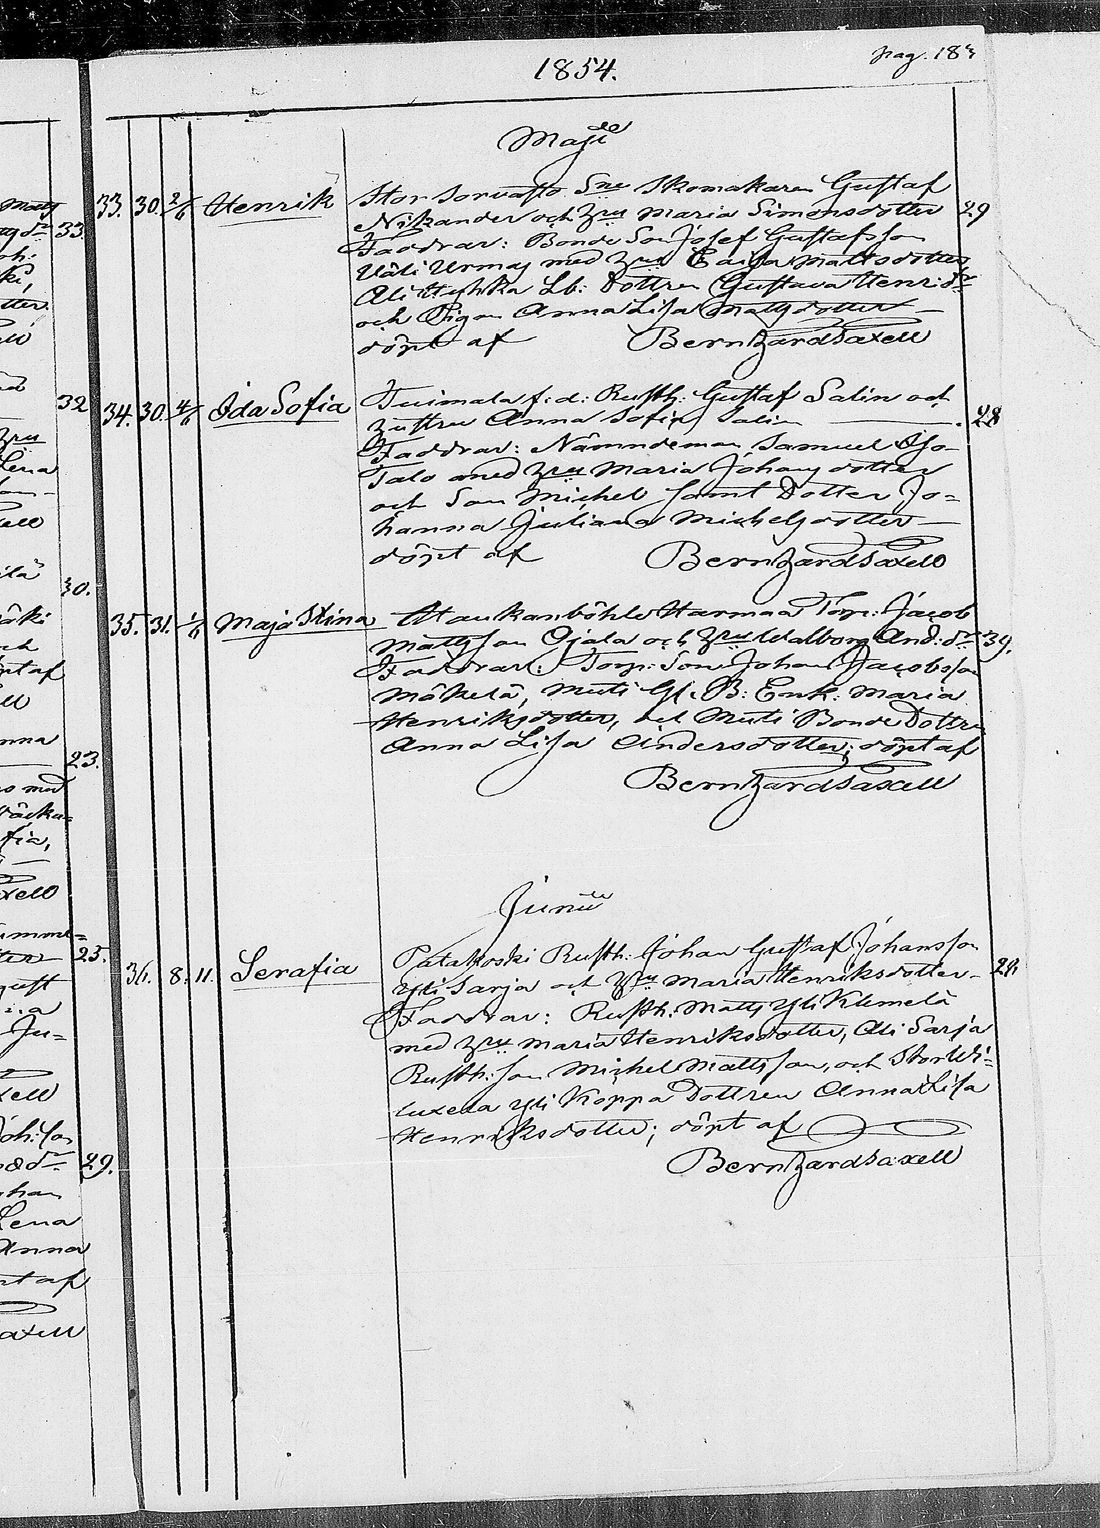 1854.
pag. 183
Maji
33. 30. 2/6 Henrik Storsorvasto Sne Skomakaren Gustaf
Nikander och hru Maria Simonsdotter 29
Faddrar: Bonde Son Josef Gustafsson
Väli Urmas med hru Caisa Mattsdotter
Ali Lb: Dottren Gustava Henricsdr
och Pigan Anna Lisa Mattsdotter
döpt af Bernhard Saxell
34. 30. 4/6 Ida Sofia Tuimala f:d: Rusth: Gustaf Salin och
hustru Anna Sofia Salin 28
Faddrar: Nämndeman Samuel Iso-
Talo med hru Maria Johansdotter
och Son Michel samt Dotter Jo=
hanna Juliana Michelsdotter
döpt af Bernhard Saxell
35. 31. 1/6 Maja Stina Haukanböhle Harmaa Torp: Jacob
Mattsson Ojala och hru Walborg And:dr 39.
Faddrar: Torp: Son Johan Jacobsson
Mäkelä, Muti Gl. B: Enk: Maria
Henriksdotter, och Muti Bonde Dottren
Anna Lisa Andersdotter; döpt af
Bernhard Saxell
Junii
36. 8. 11. Serafia Patakoski Rusth: Johan Gustaf Johansson
Yli Sarja och hru Maria Henriksdotter 29.
Faddrar: Rusth. Matts Yli Klemelä
med hru Maria Henriksdotter, Ali Sarja
Rusth: Son Michel Mattsson, och Stor Wi=
luxela Yli Koppa Dottren Anna Lisa
Henriksdotter; döpt af
Bernhard Saxell